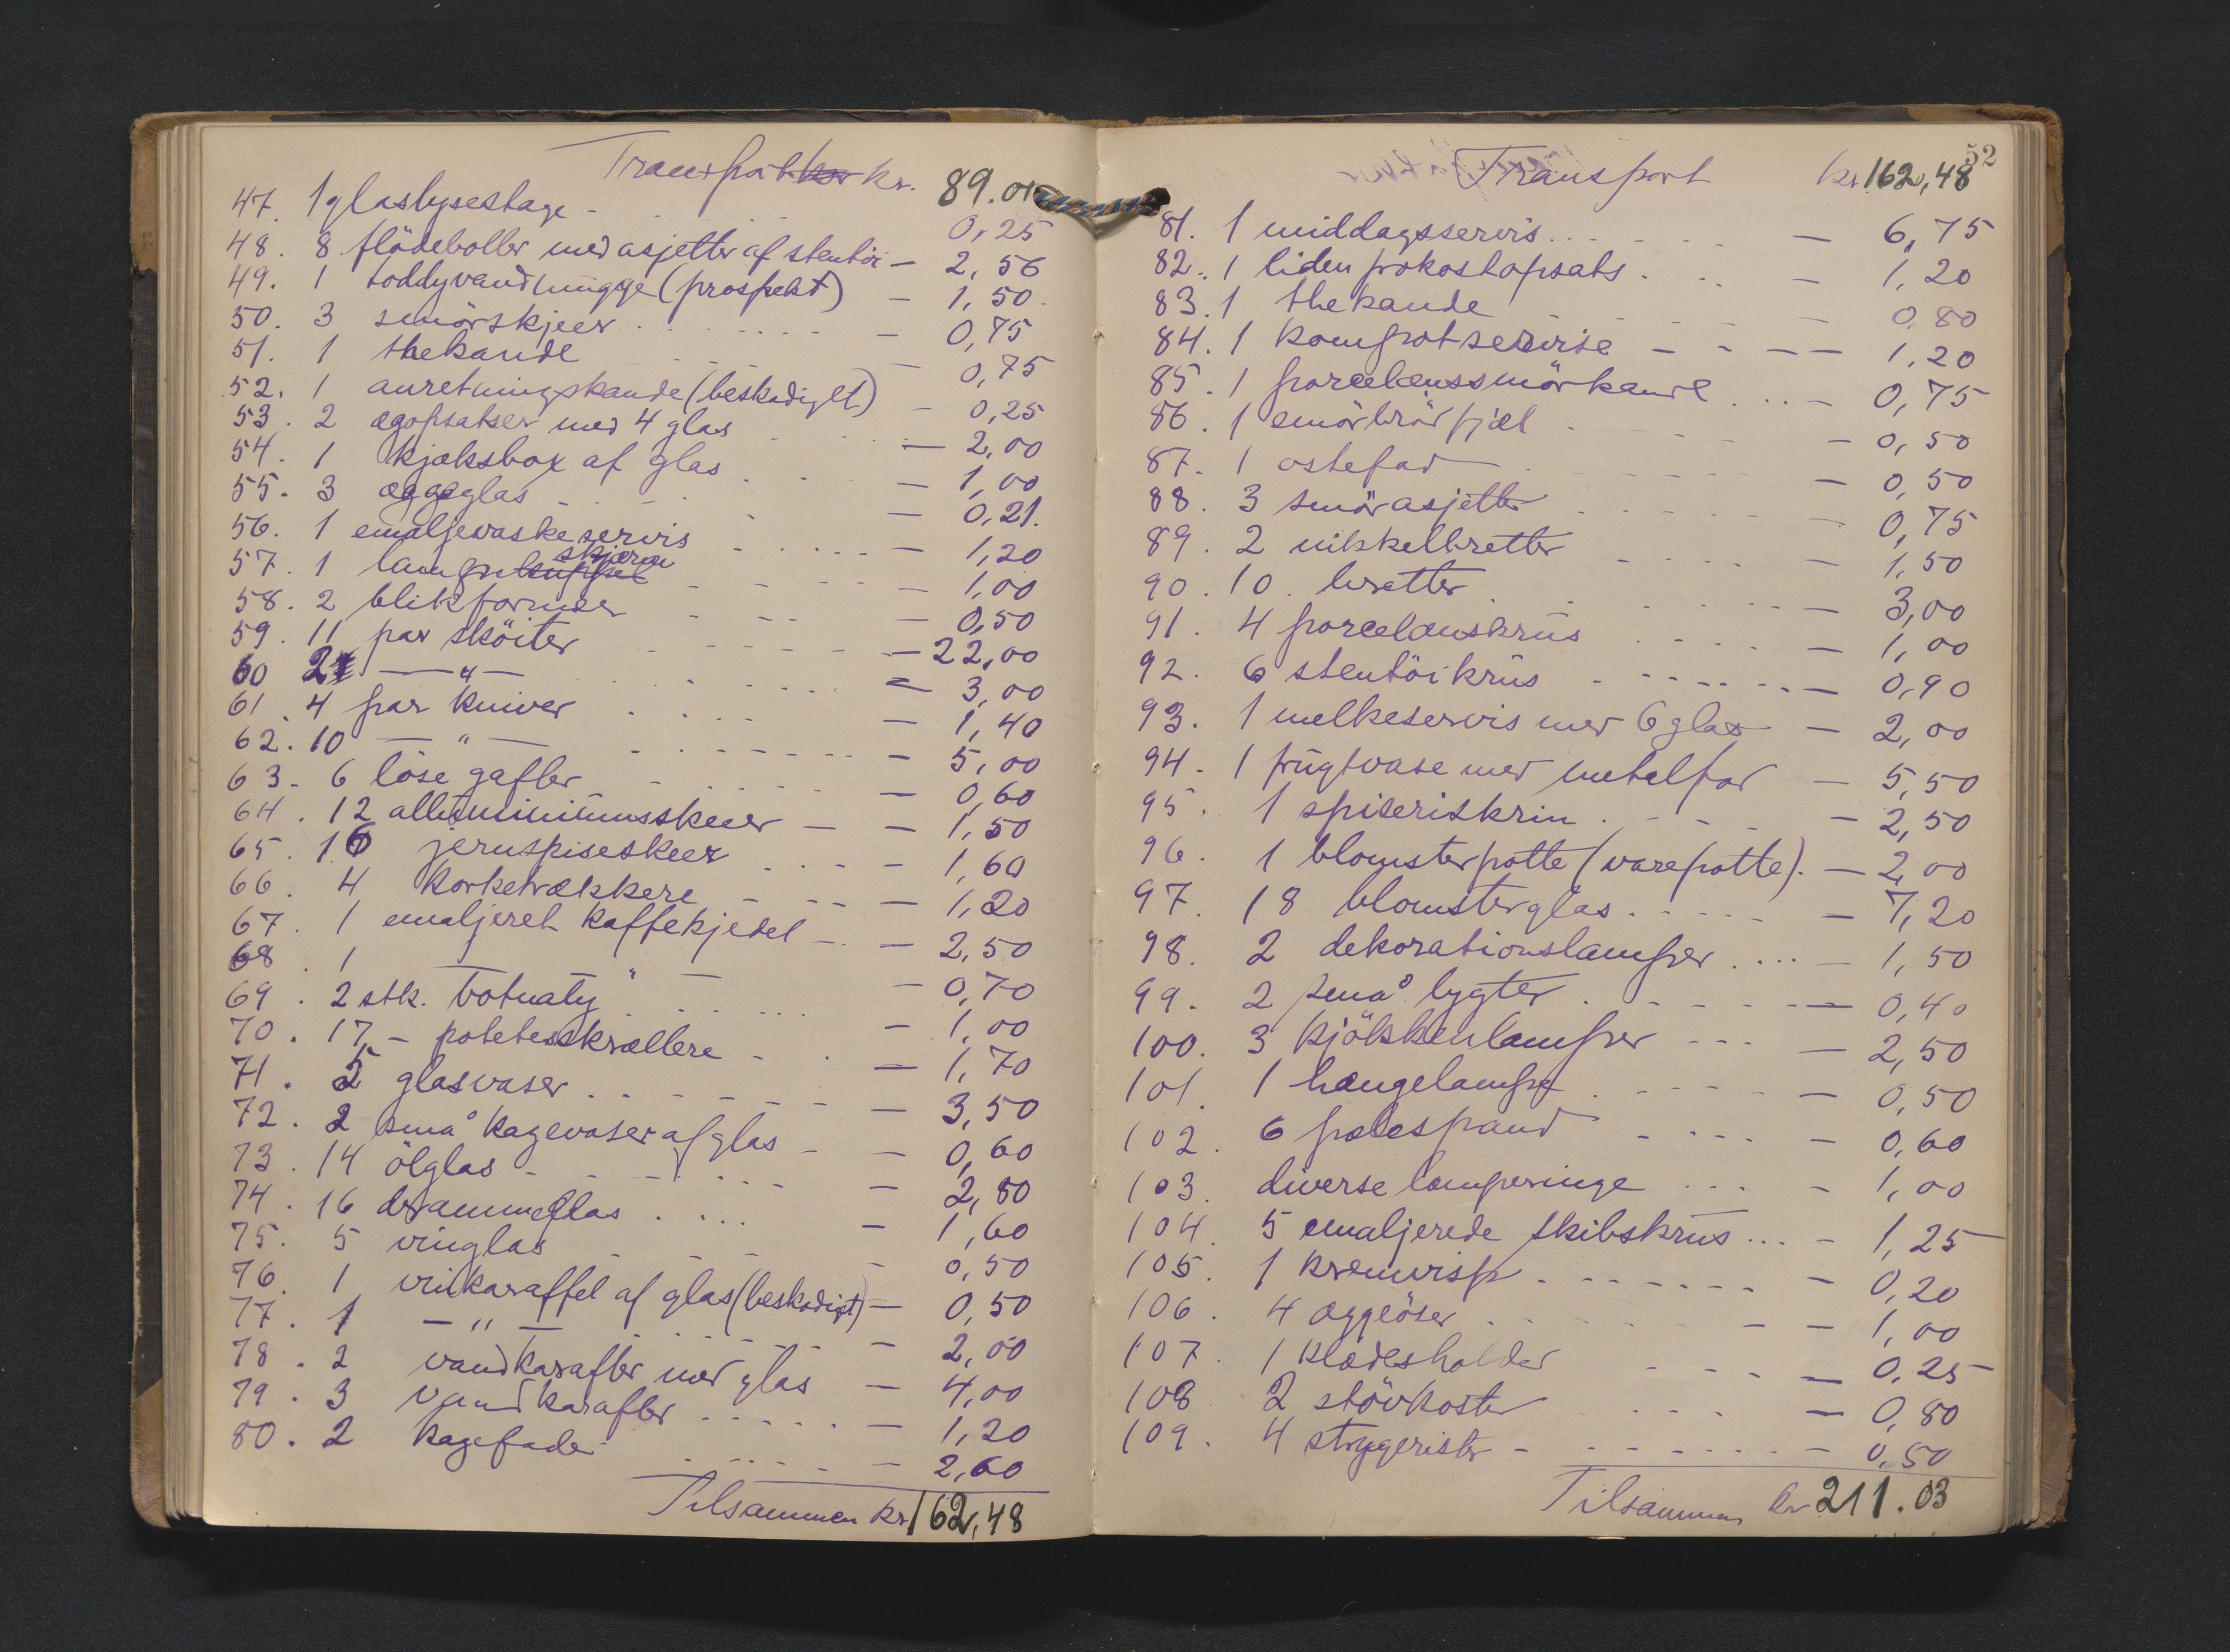 Transport kr. 89.01
47. 1 glaslysestage - 0,25
48. 8 flödeboller med asjetter af stentöi - 2,56
49. 1 toddyvandmugge (prospekt) - 1,50
50. 3 smörskjeer - 0,75
51. 1 thekande - 0,75
52. 1 anretningskande (beskadiget) - 0,25
53. 2 ægopsatser med 4 glas - 2,00
54. 1 kjæksbox af glas - 1,00
55. 3 æggeglas - 0,21.
56. 1 emaljevaskeservis - 1,20
57. 1 lampeskjærm - 1,00
58. 2 blikformer - 0,50
59. 11 par sköiter - 22,00
60 2 — " — - 3,00
61. 4 par kniver - 1,40
62. 10 — " — - 5,00
63. 6 löse gafler - 0,60
64. 12 alluminiumsskeer - 1,50
65. 16 jernspiseskeer - 1,60
66. 4 korketrækkere - 1,20
67. 1 emaljeret kaffekjedel - 2,50
68. 1 — " — - 0,70
69. 2 stk. - 1,00
70. 17 - potetesskrællere - 1,70
71. 5 glasvaser - 3,50
72. 2 små kagevaser af glas - 0,60
73. 14 ölglas - 2,80
74. 16 drammeglas - 1,60
75. 5 vinglas - 0,50
76. 1 vinkaraffel af glas (beskadigt) - 0,50
77. 1 — " — - 2,00
78. 2 vandkarafler med glas - 4,00
79. 3 vandkarafler - 1,20
80. 2 kagefade - 2,60
Tilsammen kr. 162,48
52
Transport kr. 162,48
81. 1 middagsservis - 6,75
82. 1 liden frokostopsats - 1,20
83. 1 thekande - 0,80
84. 1 kompotservise - 1,20
85. 1 porcelænssmörkande - 0,75
86. 1 smörbrödfjæl - 0,50
87. 1 ostefad - 0,50
88. 3 smörasjetter - 0,75
89. 2 nikkelbretter - 1,50
90. 10 bretter - 3,00
91. 4 porcelænskrus - 1,00
92. 6 stentöikrus - 0,90
93. 1 melkeservis med 6 glas - 2,00
94. 1 frugtvase med metalfod - 5,50
95. 1 spiseriskrin - 2,50
96. 1 blomsterpotte (varepotte). - 2,00
97. 18 blomsterglas - 7,20
98. 2 dekorationslamper - 1,50
99. 2 små lygter - 0,40
100. 3 kjökkenlamper - 2,50
101. 1 hængelampe - 0,50
102. 6 - 0,60
103. diverse lamperinge - 1,00
104. 5 emaljerede skibskrus - 1,25
105. 1 kremvisp - 0,20
106. 4 æggeöser - 1,00
107. 1 klædesholder - 0,25
108 2 stövkoster - 0,80
109. 4 strygerister - 0,50
Tilsammen kr 211.03